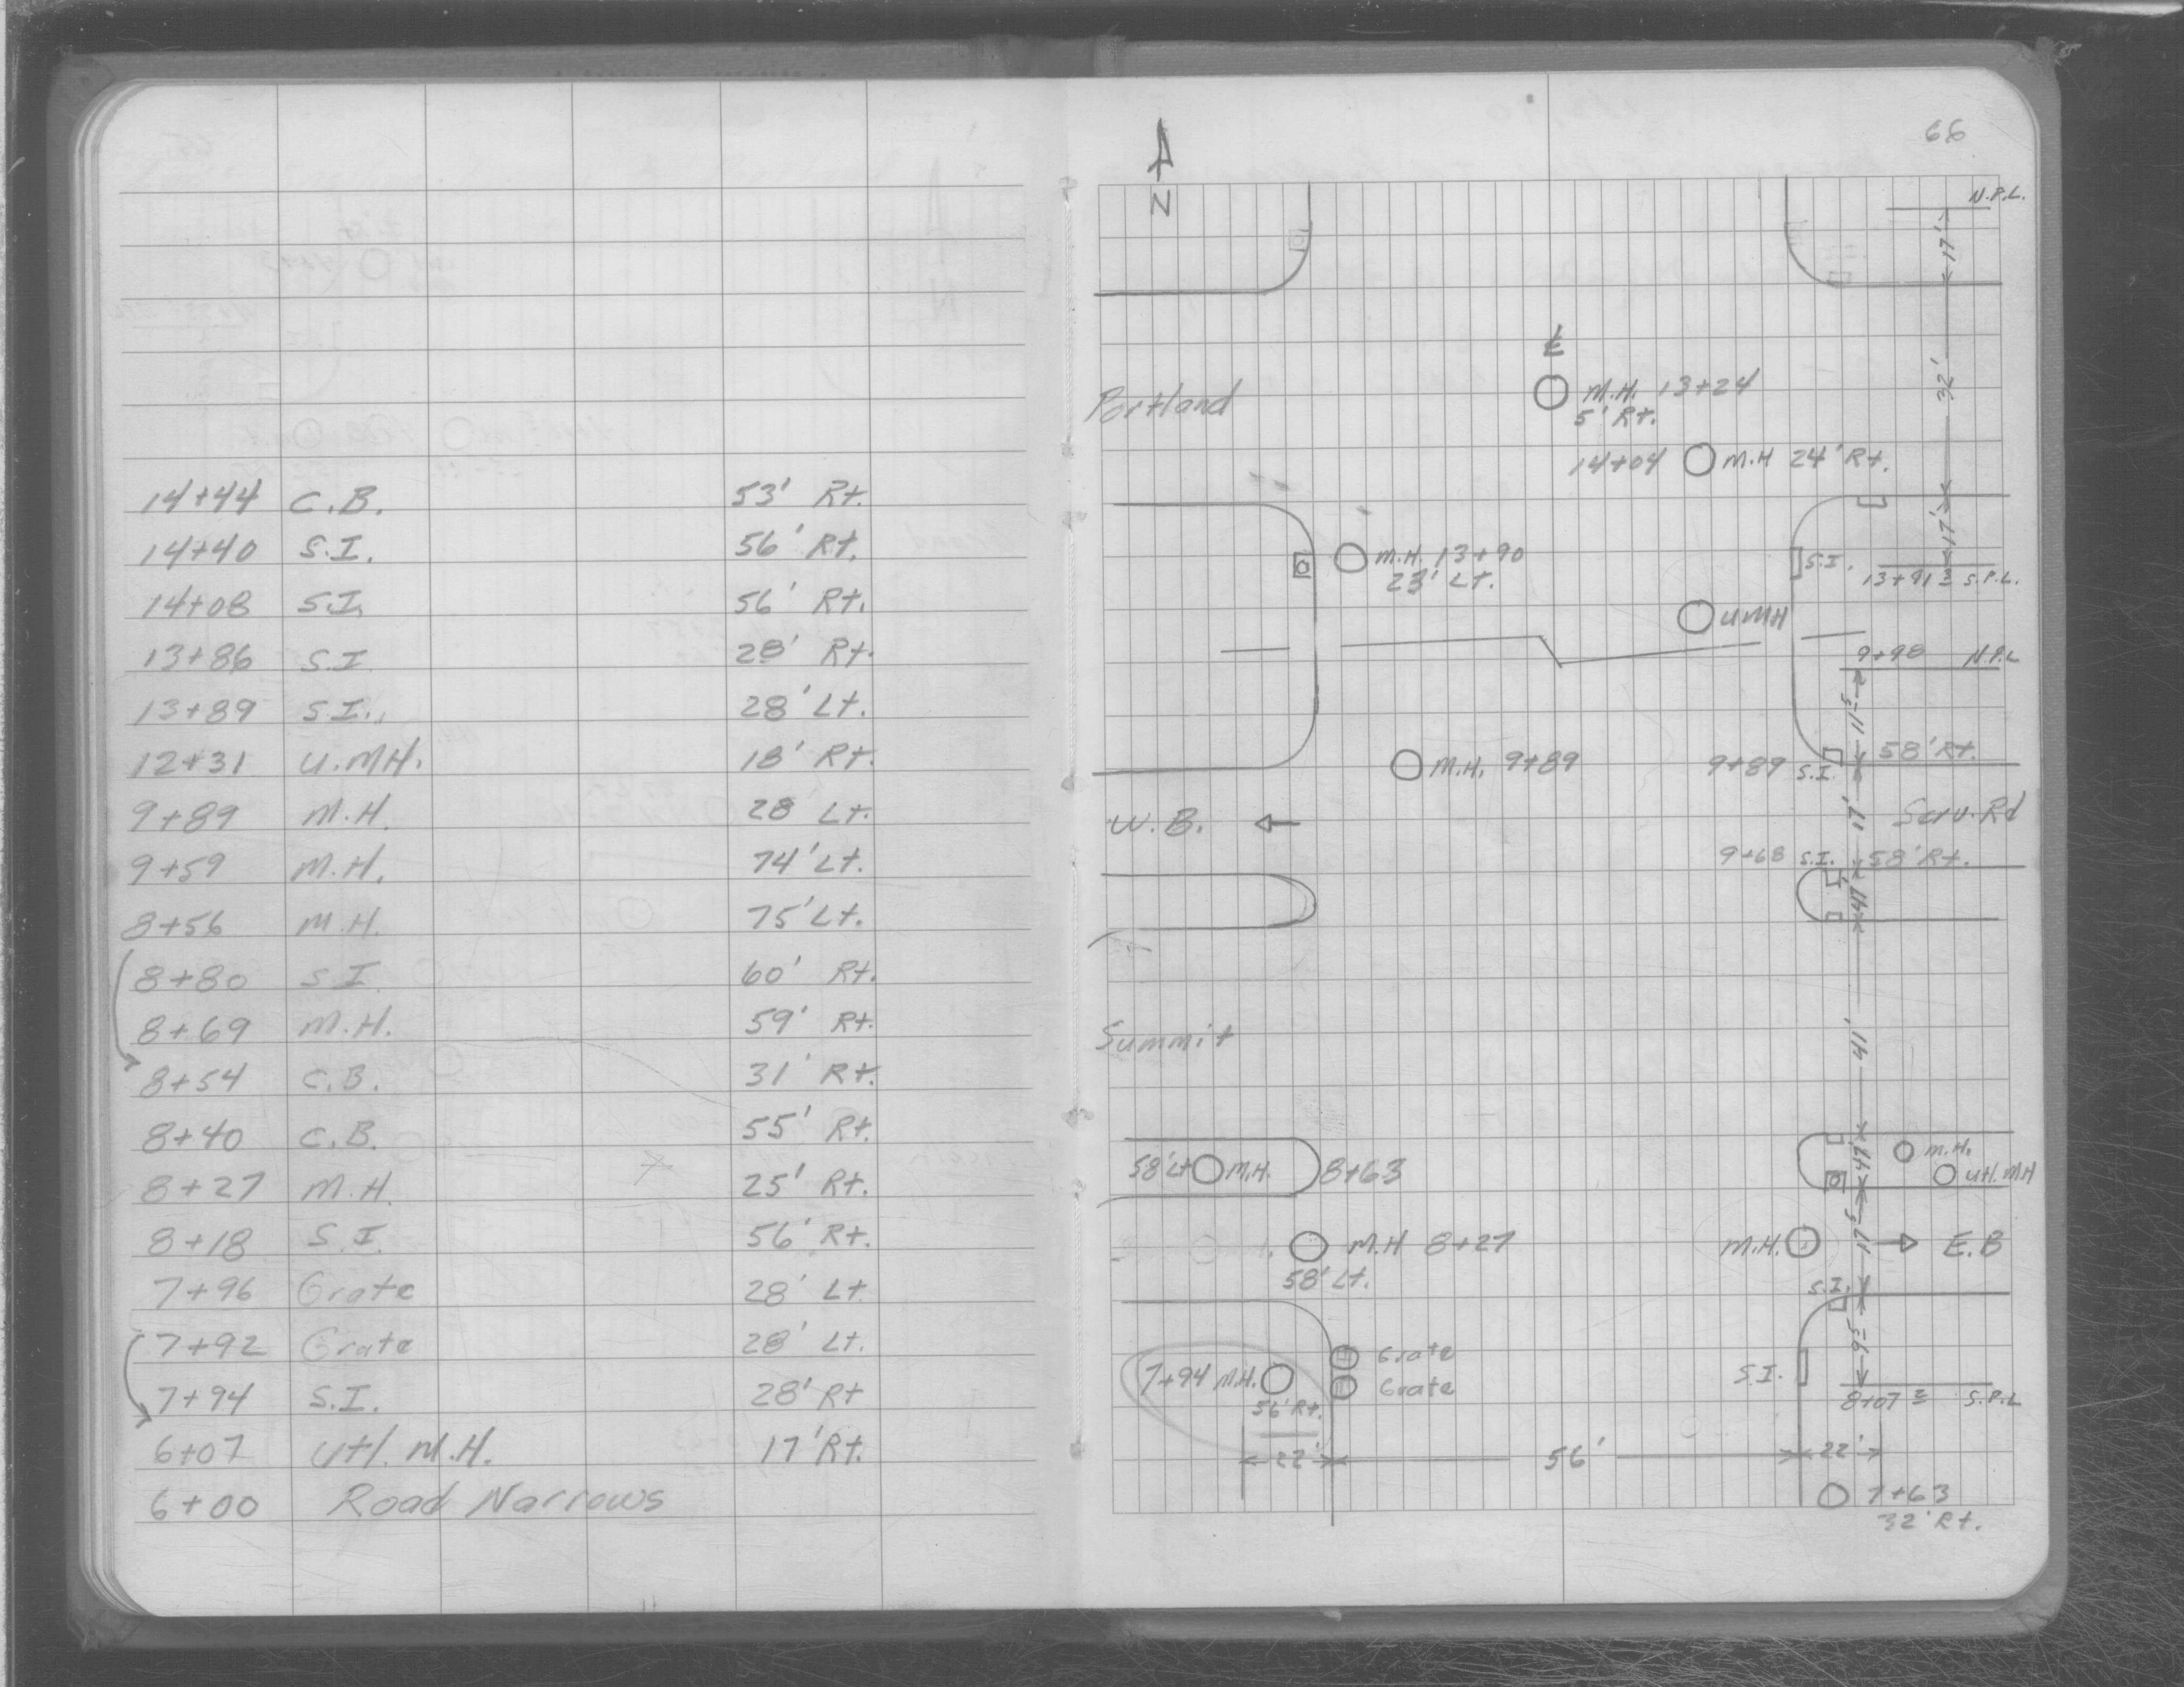 14+44 C.B. 53' Rt.
14+40 S.I. 56' Rt.
14+08 S.I. 56' Rt.
13+86 S.I. 28' Rt.
13+89 S.I. 28' Lt.
12+31 U.MH. 18' Rt.
9+89 M.H. 28 Lt.
9+59 M.H. 74' Lt.
8+56 M.H. 75' Lt.
8+80 S.I. 60' Rt.
8+69 M.H. 59' Rt.
8+54 C.B. 31' Rt.
8+40 C.B. 55' Rt.
8+27 M.H. 25' Rt.
8+18 S.I. 56' Rt.
7+96 Grate 28' Lt
7+92 Grate 28' Lt.
7+94 S.I. 28' Rt
6+07 Utl. M.H. 17' Rt.
6+00 Road Narrows
66
N
N.P.L.
17'
32'
Portland
M.H. 13+24
5' Rt.
14+04 M.H 24' Rt.
M.H. 13+90
23' Lt.
S.I.
17'
13+91 S.P.L.
UMH
9+98 N.P.L
11
M.H. 9+89
9+89 S.I. 58' Rt.
W.B.
17'
Serv. Rd
9+68 S.I. 58' Rt.
41'
Summit
58' Lt M.H. 8+63
M.H.
Utl. MH
M.H 8+27
58' Lt.
M.H.
17
E.B
S.I.
7+94 M.H.
56' Rt.
Grate
Grate
S.I.
9
8+07 S.P.L
22' 56' 22'
7+63
32' Rt.